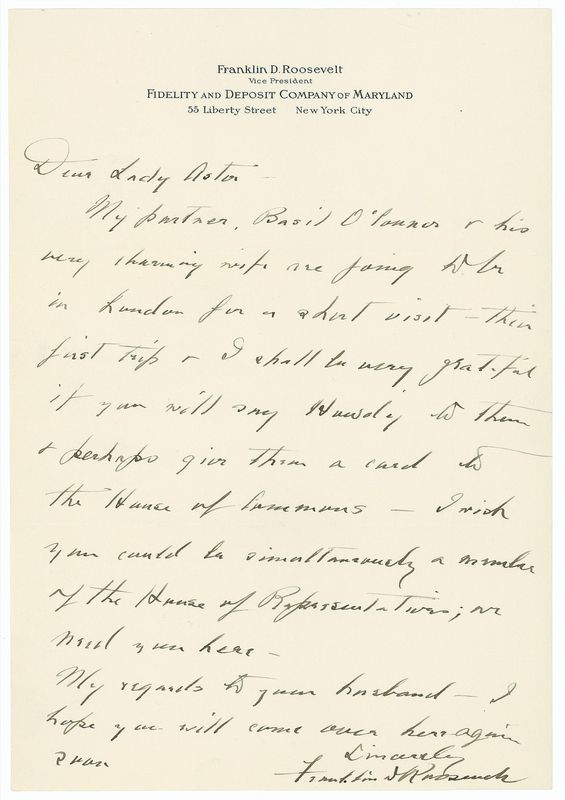 Franklin D. Roosevelt
Vice President
Fidelity and Deposit Company of Maryland
55 Liberty Street New York City
Dear Lady Astor –
My partner, Basil O'Connor & his
very charming wife are going to be
in London for a short visit – their
first trip & I shall be very grateful
if you will say Howdy to them
& perhaps give them a card to
the House of Commons – I wish
you could be simultaneously a member
of the House of Representatives; we
need you here –
My regards to your husband – I
hope you will come over here again
soon
Sincerely
Franklin D Roosevelt